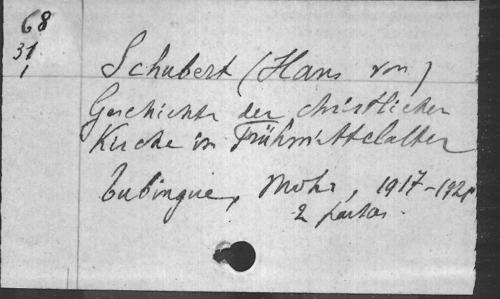 68
31
1
Schubert (Hans von)
Geschichte der christlichen
Kirche im Frühmittelalter
Tubingue, Mohr, 1917-1921
2 parties.